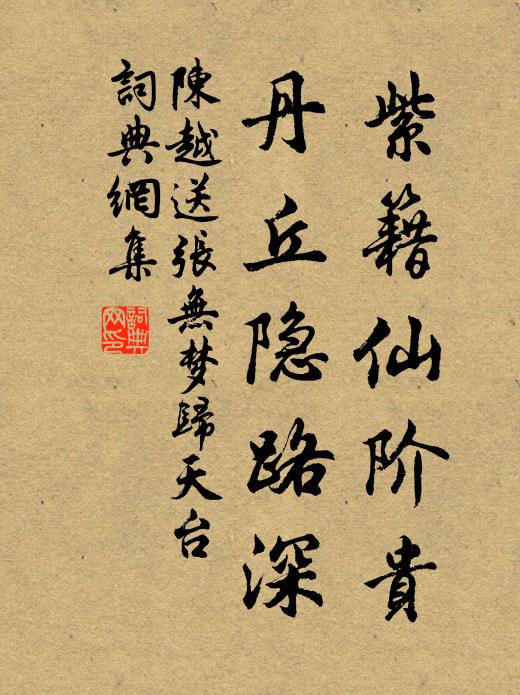 紫籍仙阶貴
丹丘隐路深
陳越送張無梦歸天台
詞典網集
詞典网印